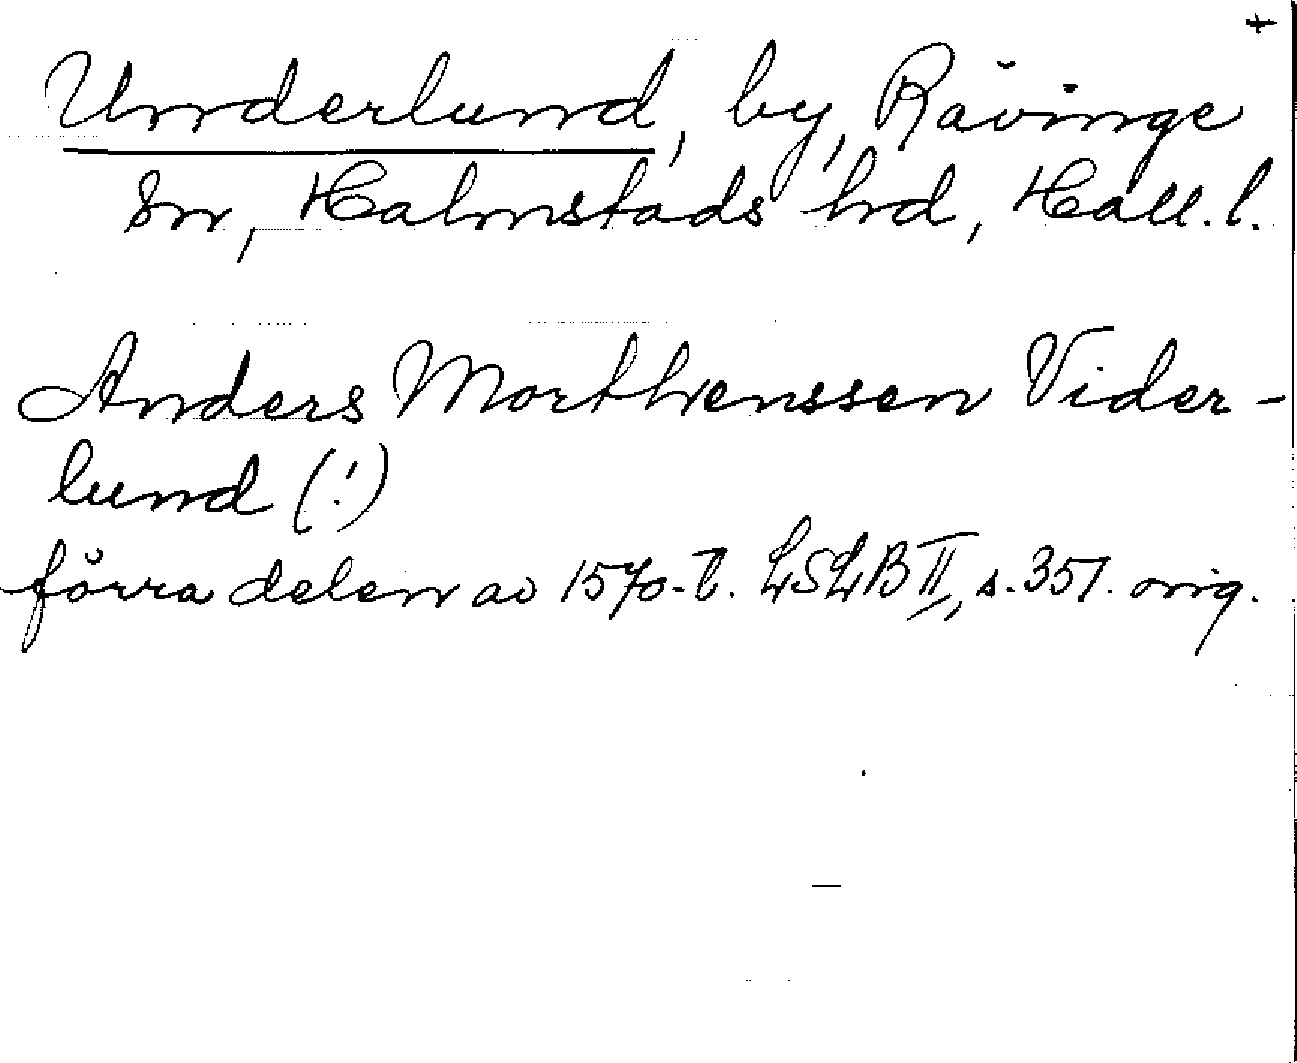 +
Underlund, by, Råvinge
sn, Halmstads hd, Hall. l.
Anders Morthenssen Vider-
lund (!)
förra delen av 1570-t. LSLB II, s. 351. orig.